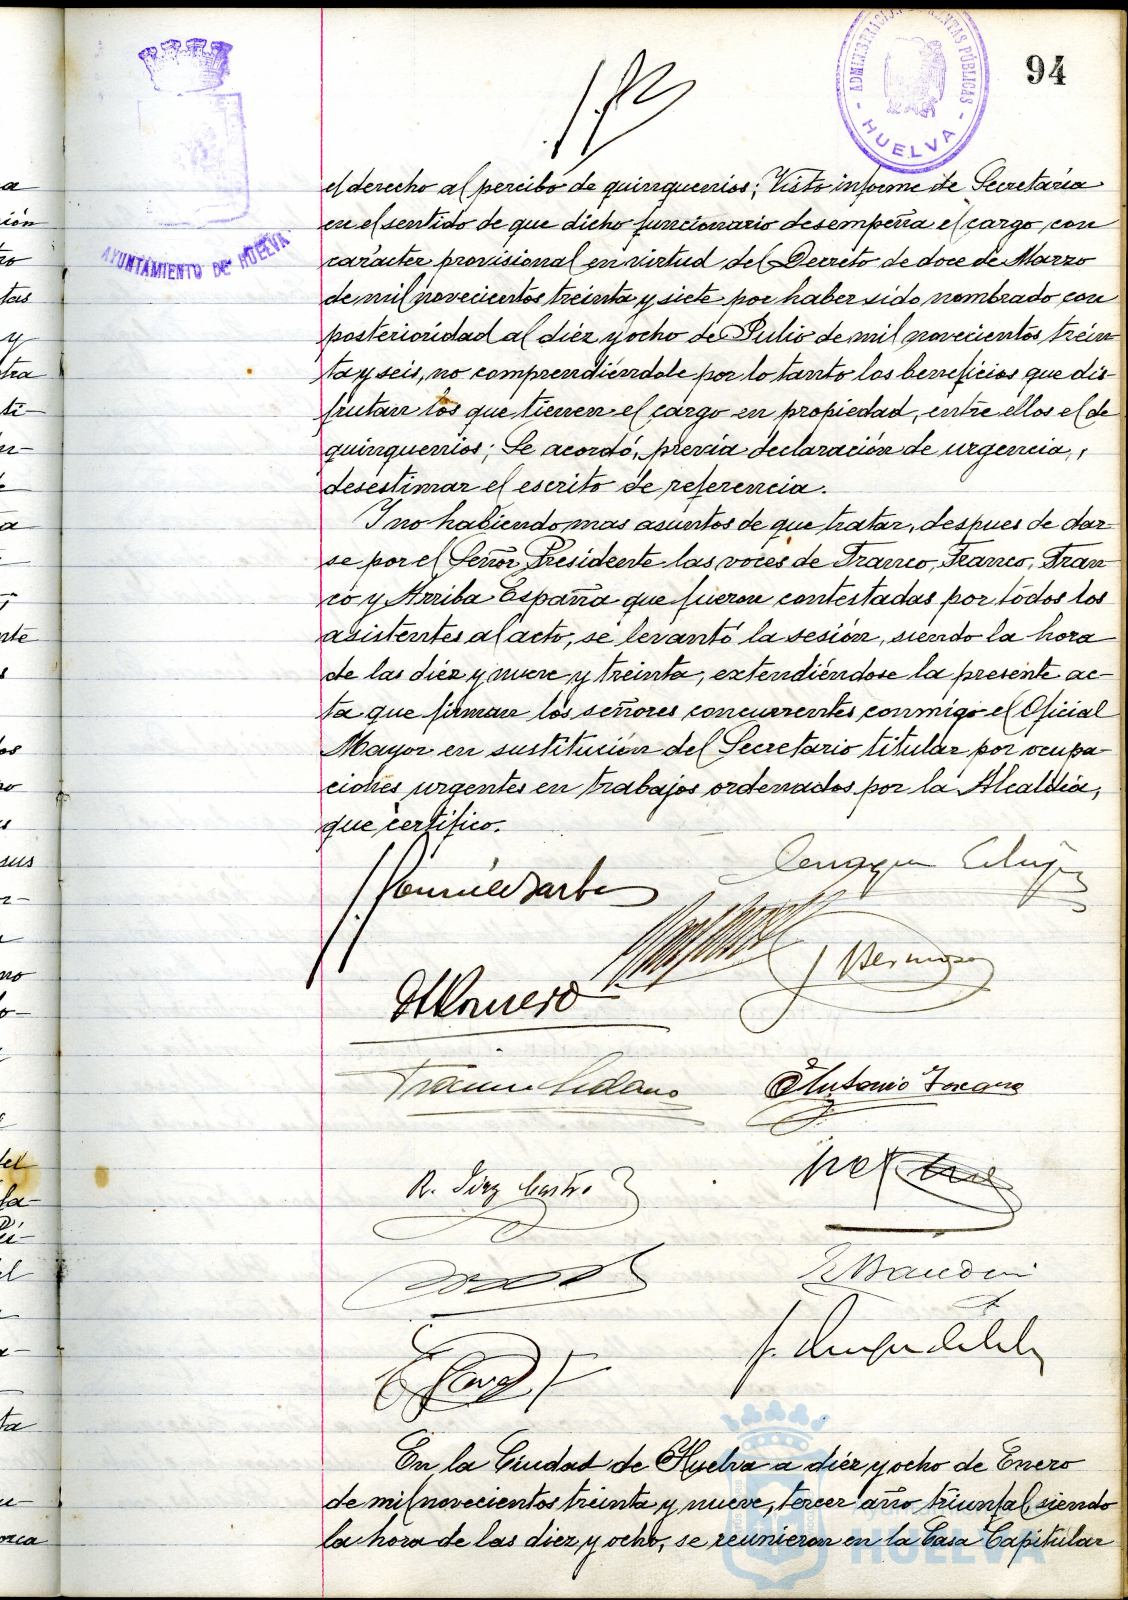 94
ADMINISTRACIÓN DE RENTAS PÚBLICAS
- HUELVA -
AYUNTAMIENTO DE HUELVA
el derecho al percibo de quinquenios; Visto informe de Secretaria
en el sentido de que dicho funcionario desempeña el cargo con
carácter provisional en virtud del Decreto de doce de Marzo
de mil novecientos treinta y siete por haber sido nombrado con
posterioridad al diéz y ocho de Julio de mil novecientos trein-
ta y seis, no comprendiéndole por lo tanto los beneficios que dis-
frutan los que tienen el cargo en propiedad, entre ellos el de
quinquenios; Se acordó, previa declaración de urgencia,,
desestimar el escrito de referencia.
Y no habiendo mas asuntos de que tratar, despues de dar-
se por el Señor Presidente las voces de Franco, Franco, Fran-
co y Arriba España que fueron contestadas por todos los
asistentes al acto, se levantó la sesión, siendo la hora
de las diéz y nueve y treinta, extendiéndose la presente ac-
ta que firman los señores concurrentes conmigo el Oficial
Mayor en sustitución del Secretario titular por ocupa-
ciones urgentes en trabajos ordenados por la Alcaldía,
que certifico.
J. Bermoso
Romero
Antonio Toscano
R. Diaz Castro
En la Ciudad de Huelva a diéz y ocho de Enero
de mil novecientos treinta y nueve, tercer año triunfal, siendo
la hora de las diez y ocho, se reunieron en la Casa Capitular
Ayuntamiento de
HUELVA